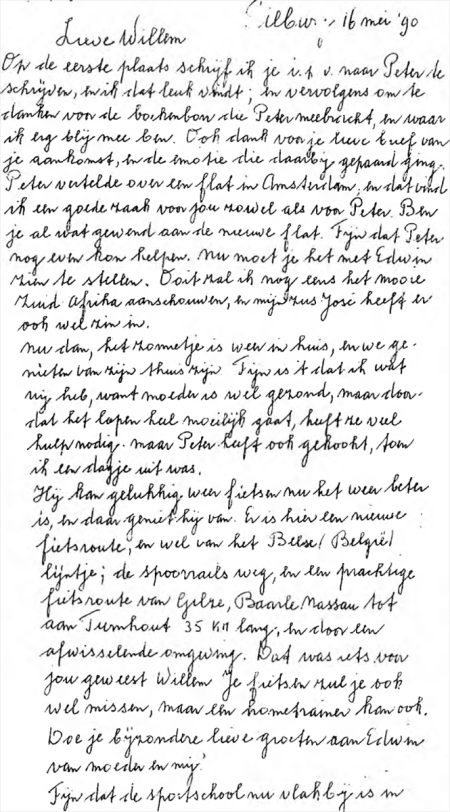 Tilburg, 16 mei '90
Lieve Willem
Op de eerste plaats schrijf ik je i.p.v. naar Peter te
schrijven, en ik dat leuk vindt; en vervolgens om te
danken voor de boekenbon die Peter meebracht, en waar
ik erg blij mee ben. Ook dank voor je lieve brief van
je aankomst, en de emotie die daarbij gepaard ging.
Peter vertelde over een flat in Amsterdam, en dat vind
ik een goede zaak voor jou zowel als voor Peter. Ben
je al wat gewend aan de nieuwe flat. Fijn dat Peter
nog even kon helpen. Nu moet je het met Edwin
zien te stellen. Ooit zal ik nog eens het mooie
Zuid Afrika aanschouwen, en mijn zus José heeft er
ook wel zin in.
Nu dan, het zonnetje is weer in huis, en we ge-
nieten van zijn thuis zijn. Fijn is 't dat ik wat
vrij heb, want moeder is wel gezond, maar door-
dat het lopen heel moeilijk gaat, heeft ze veel
hulp nodig. maar Peter heeft ook gekookt, toen
ik een dagje uit was.
Hij kan gelukkig weer fietsen nu het weer beter
is, en daar geniet hij van. Er is hier een nieuwe
fietsroute, en wel van het Belse/België/
lijntje; de spoorrails weg, en een prachtige
fietsroute van Gilze, Baarle Nassau tot
aan Turnhout 35 KM lang, en door een
afwisselende omgeving. Dat was iets voor
jou geweest Willem Je fietsen zul je ook
wel missen, maar een hometrainer kan ook.
Doe je bijzondere lieve groeten aan Edwin
van moeder en mij!
Fijn dat de sportschool nu vlakbij is in